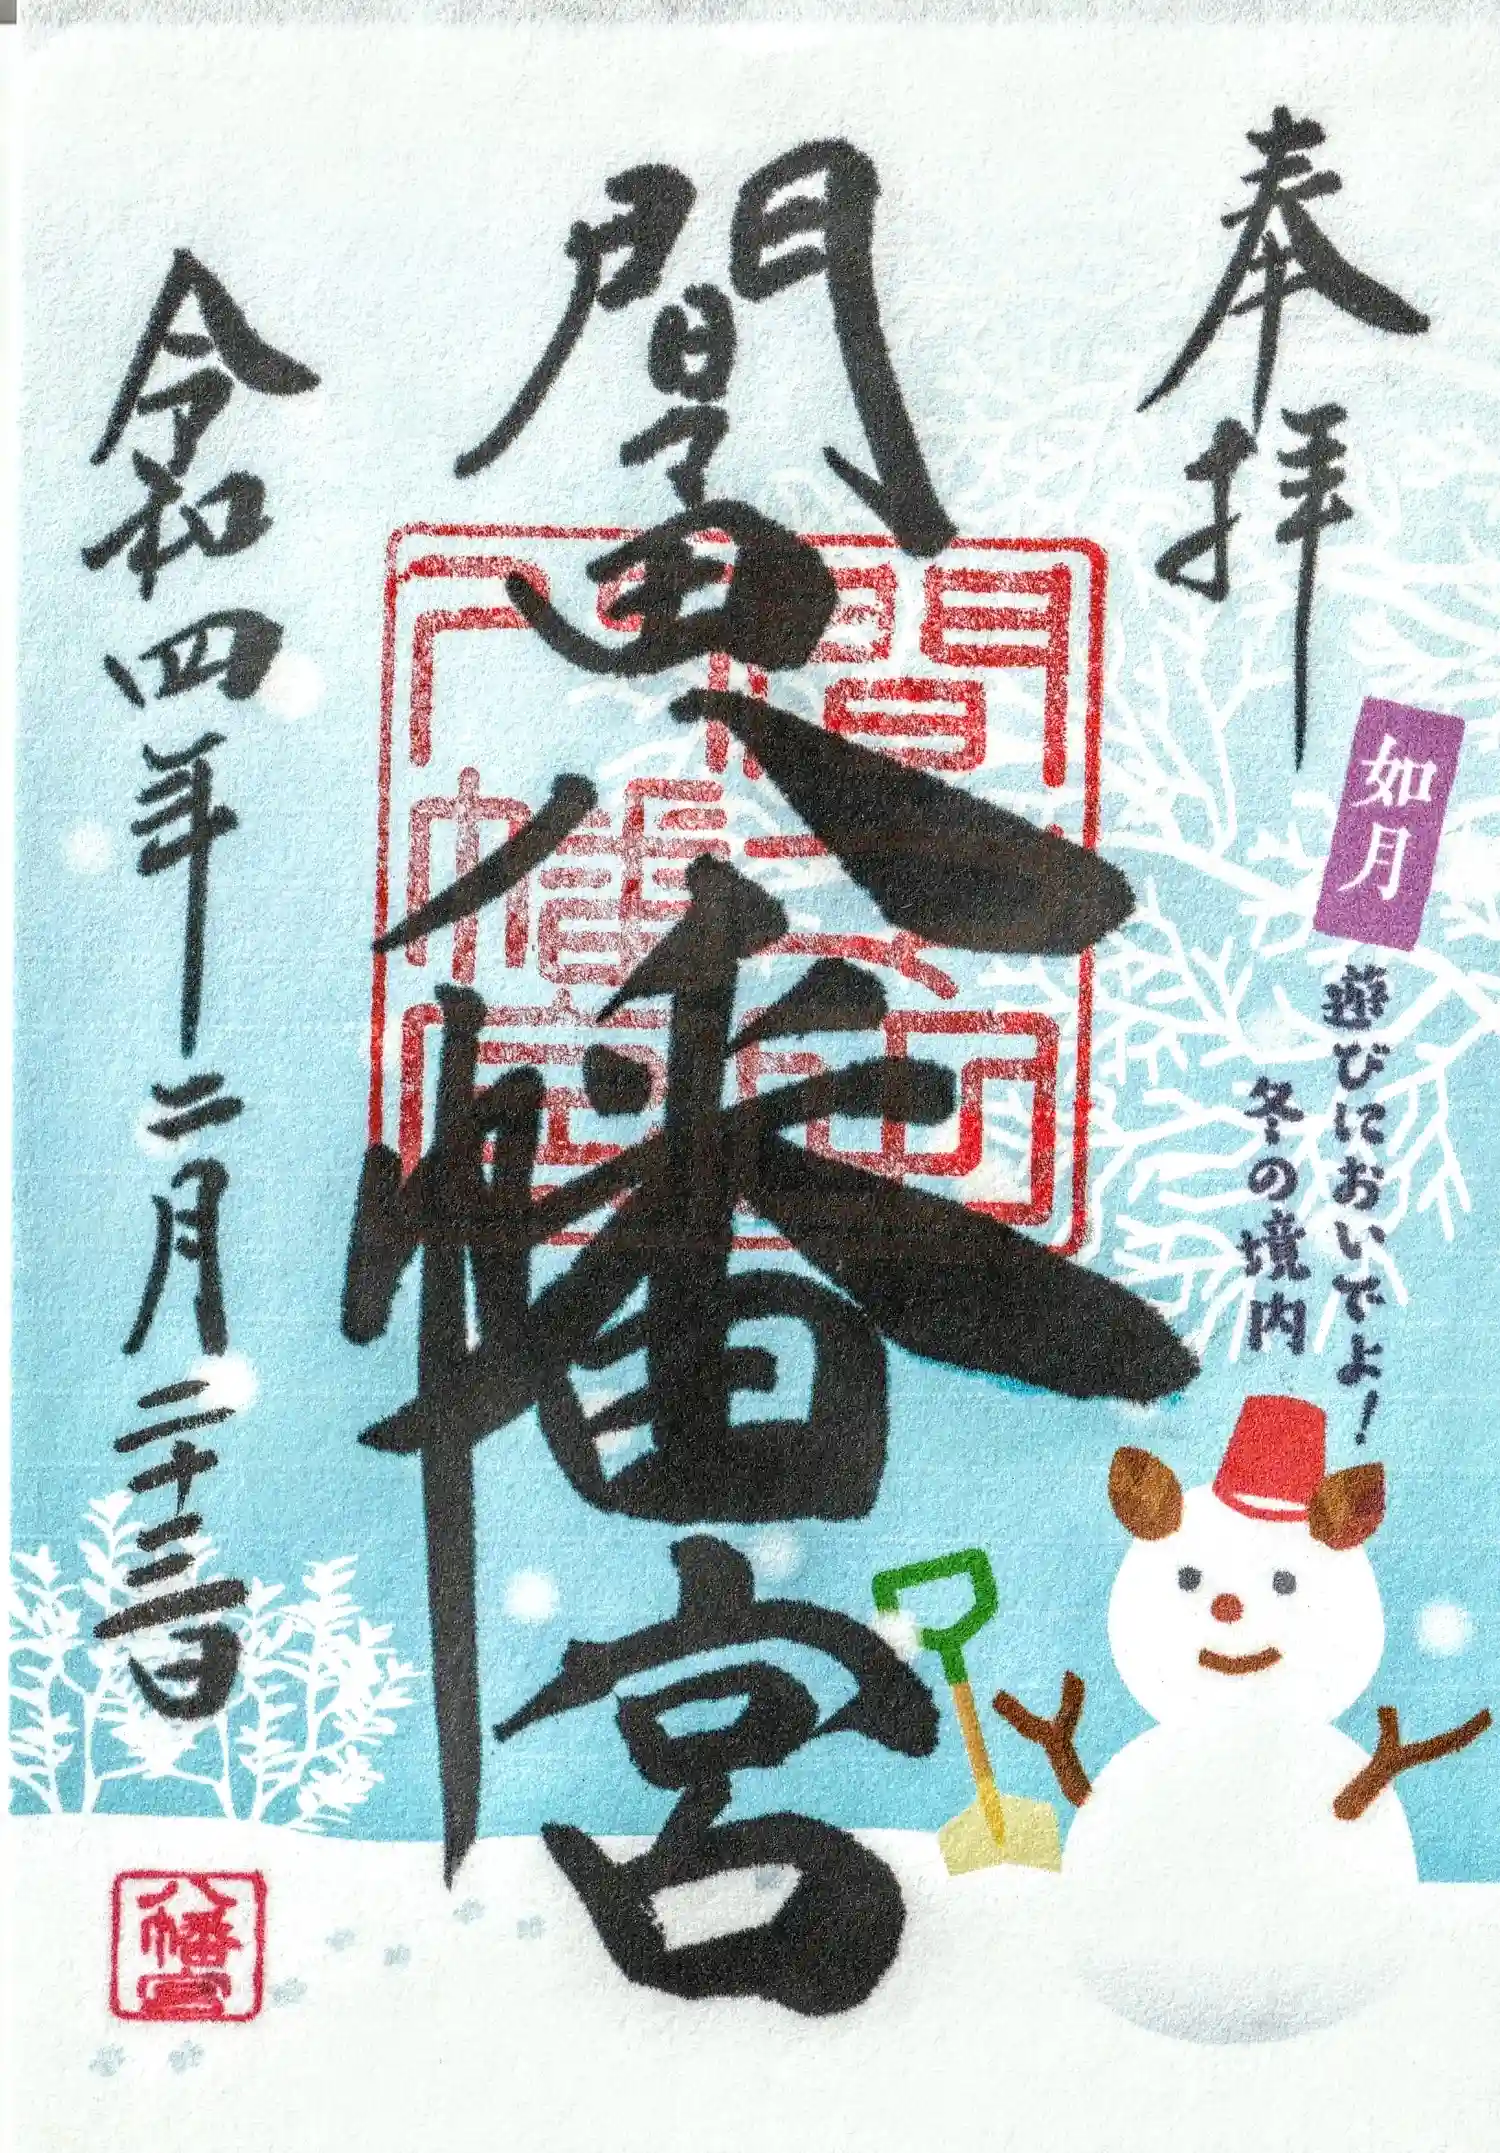 奉拝
如月
遊びにおいでよ！
冬の境内
間々田八幡宮
令和四年二月二十三日
八幡宮